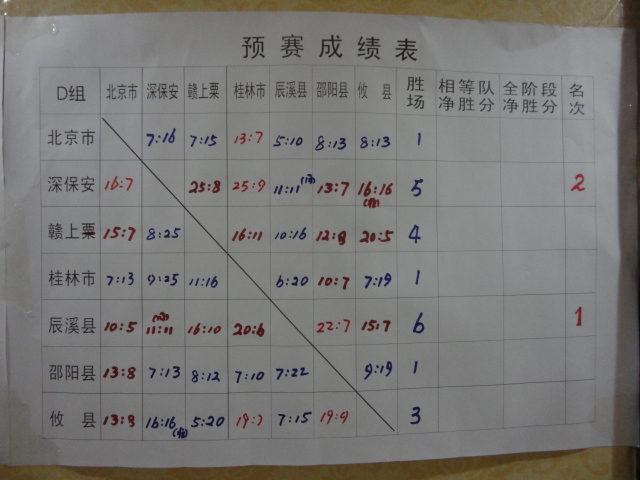 预赛成绩表
D组 北京市 深保安 赣上栗 桂林市 辰溪县 邵阳县 攸县 胜场 相等队净胜分 全阶段净胜分 名次
北京市 7:16 7:15 13:7 5:10 8:13 8:13 1
深保安 16:7 25:8 25:9 11:11 13:7 16:16 5 2
赣上栗 15:7 8:25 16:11 10:16 12:8 20:5 4
桂林市 7:13 9:25 11:16 6:20 10:7 7:19 1
辰溪县 10:5 11:11 16:10 20:6 22:7 15:7 6 1
邵阳县 13:8 7:13 8:12 7:10 7:22 9:19 1
攸县 13:8 16:16 5:20 19:7 7:15 19:9 3